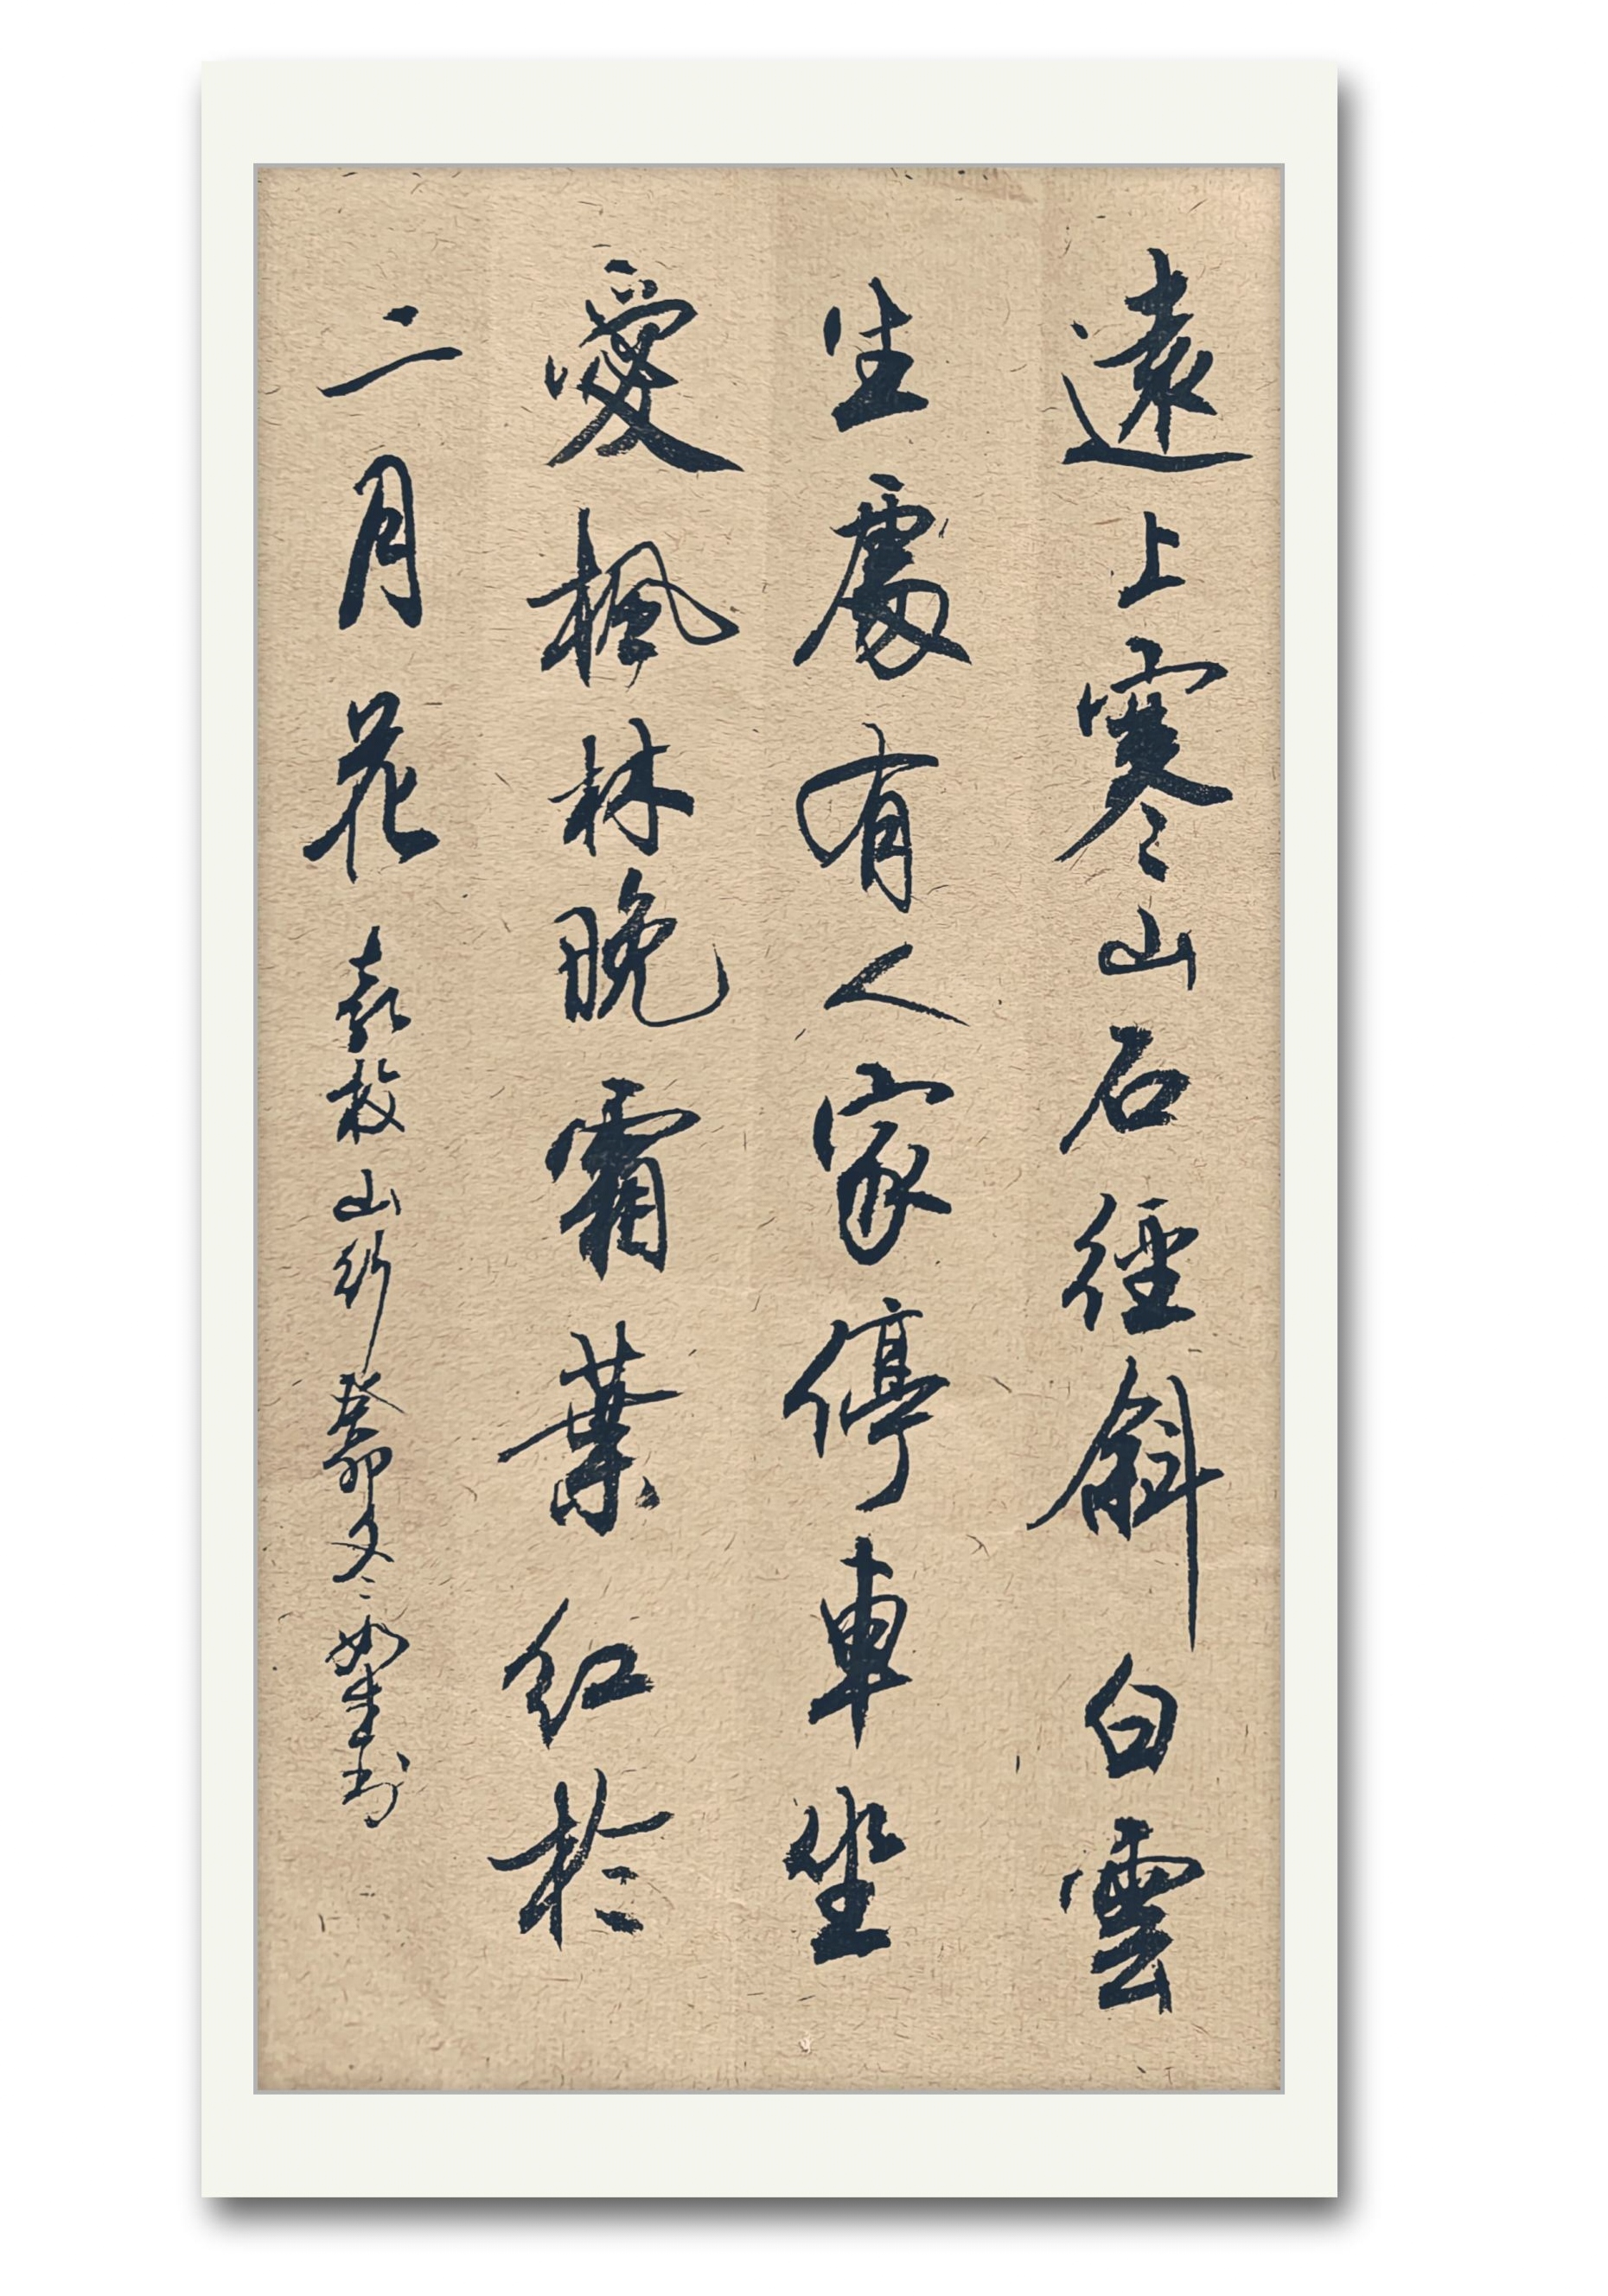 遠上寒山石徑斜白雲
生處有人家停車坐
愛楓林晚霜葉红於
二月花 袁枚山行癸卯文